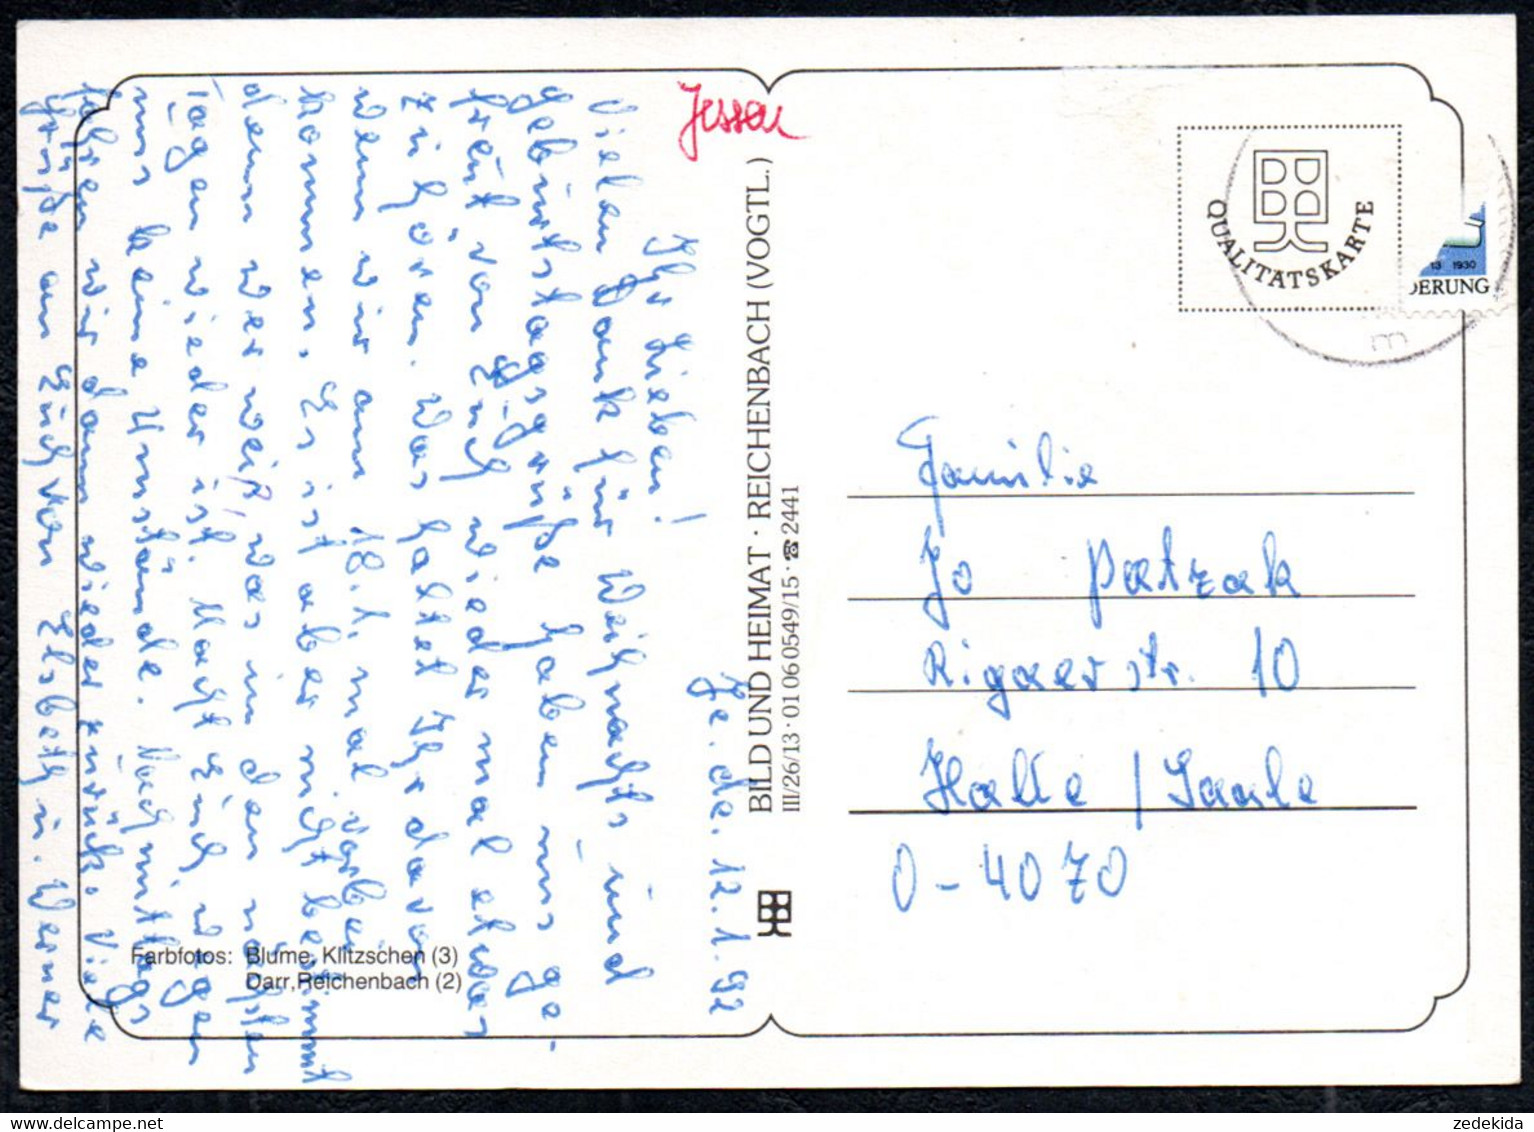 Jessen
Je. de. 12.1.92
Ihr Lieben!
Vielen Dank für Weihnachts und
Geburtstagsgrüße haben uns ge-
freut, von Euch wieder mal etwas
zu hören. Was haltet Ihr davon
wenn wir am 18.1. mal vorbei
kommen, Es ist aber nicht bestimmt
denn wer weiß, was in den nächsten
Tagen wieder ist. Macht Euch wegen
uns keine Umstände. Nachmittags
fahren wir dann wieder zurück. Viele
Grüße an Euch von Elsbeth u. Werner
Farbfotos: Blume, Klitzschen (3)
Darr, Reichenbach (2)
BILD UND HEIMAT · REICHENBACH (VOGTL.)
III/26/13 · 01 06 0549/15 · ☎ 2441
QUALITÄTSKARTE
13 1930
DERUNG
m
Familie
Jo Patzak
Rigaer str. 10
Halle / Saale
O-4070
zedekida